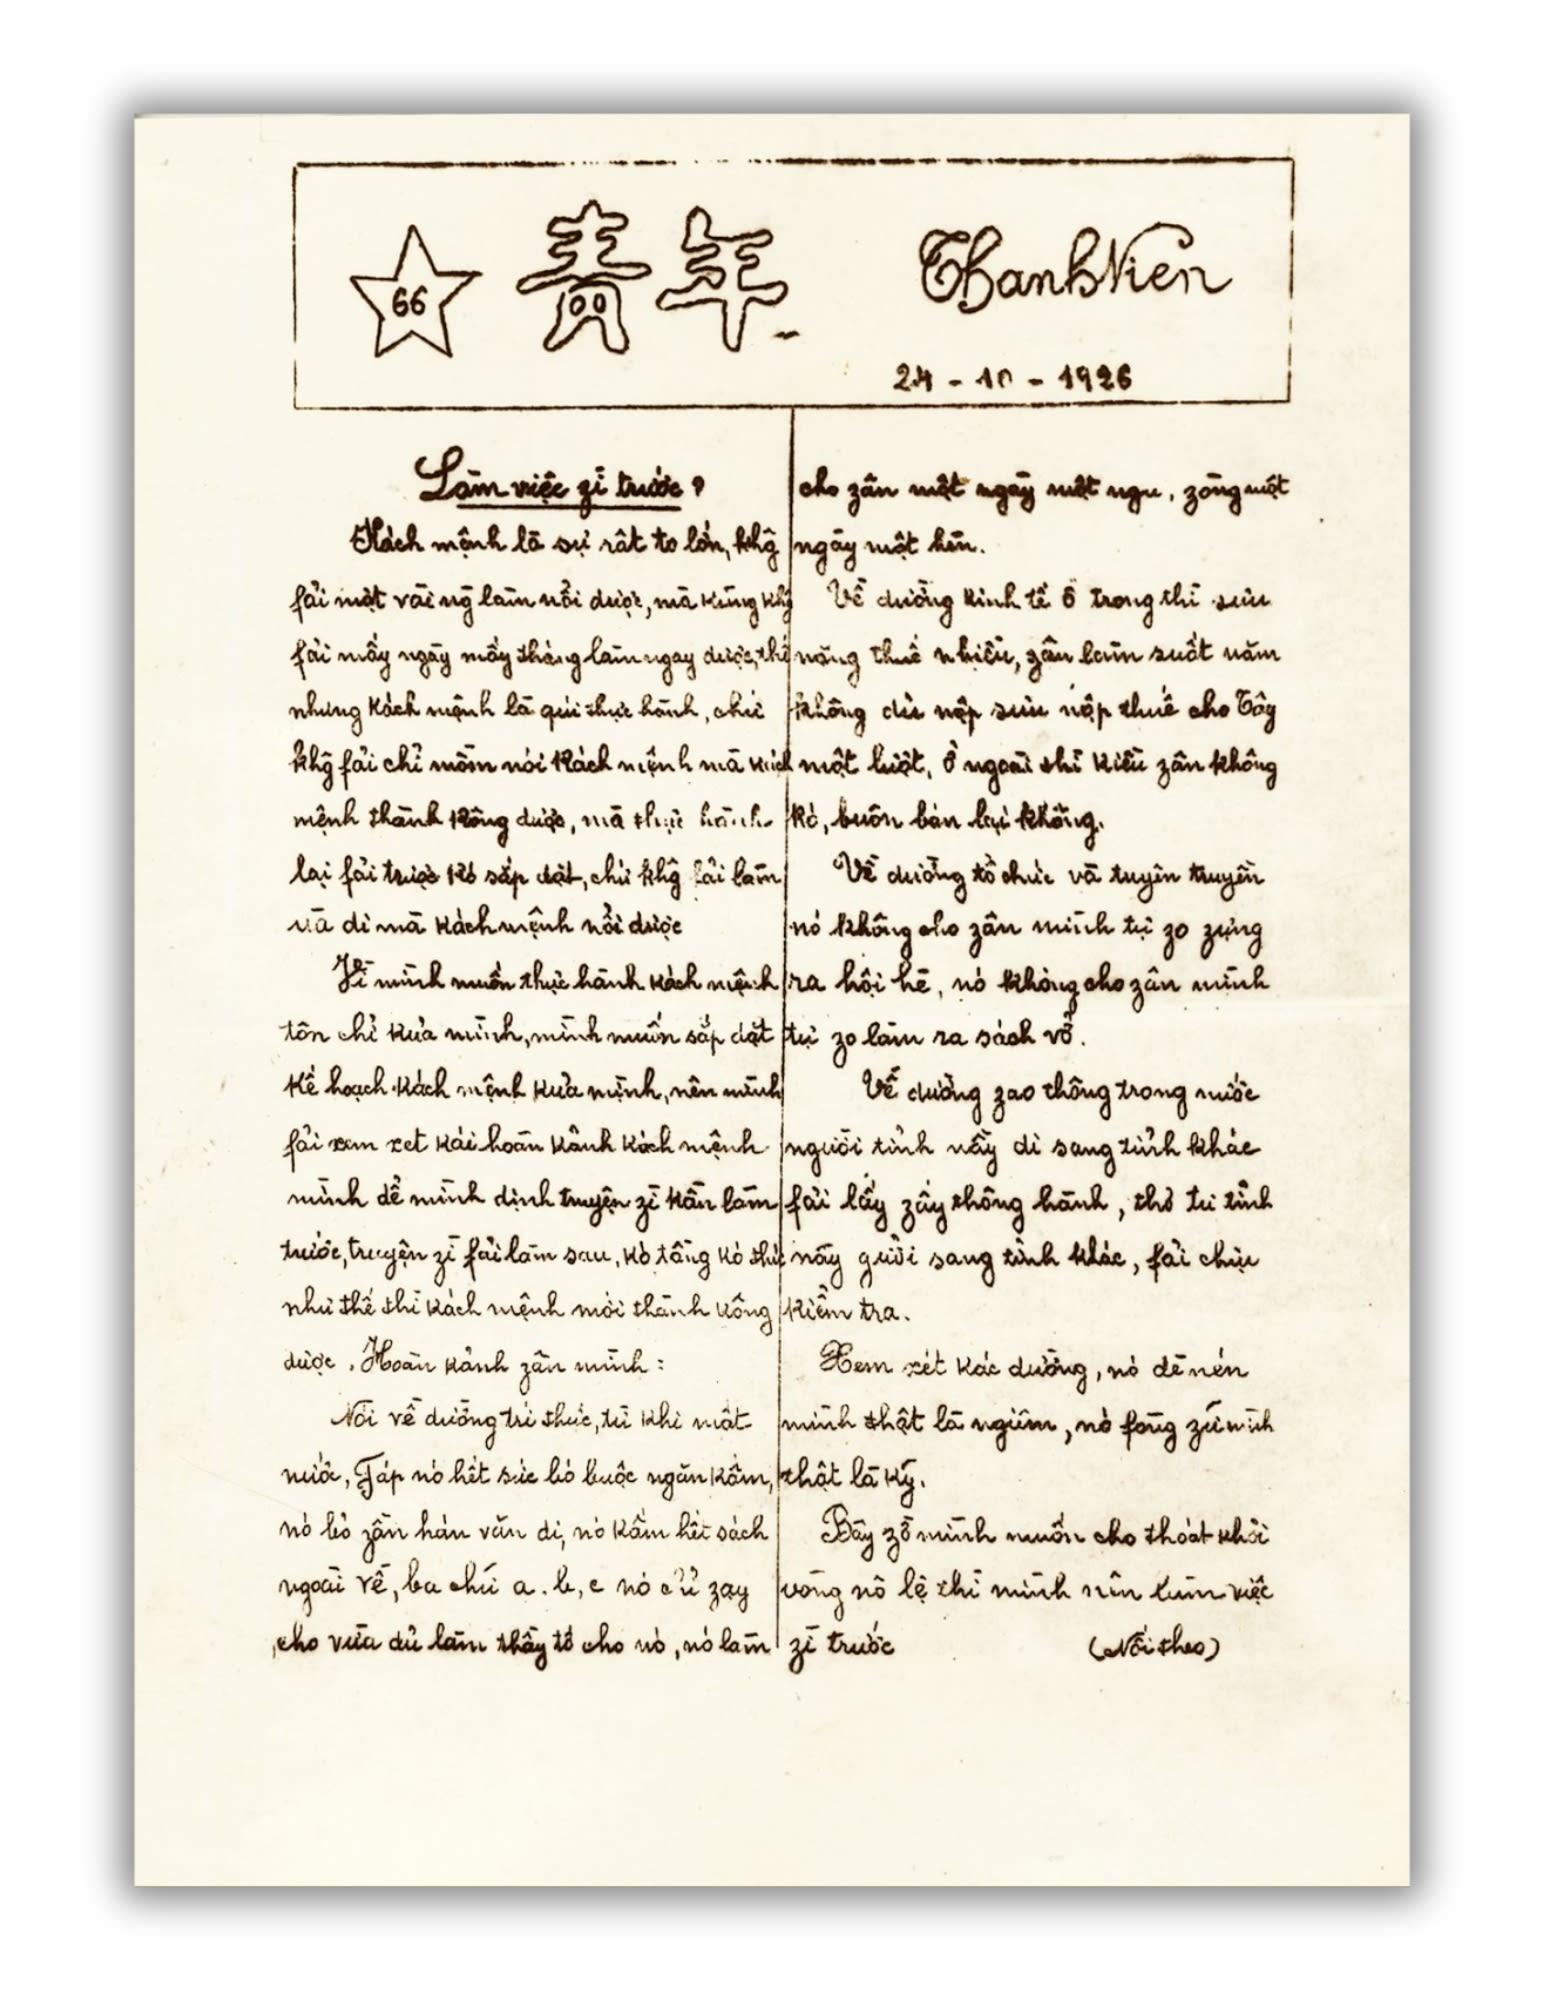 66 青年 Thanh Niên
24 - 10 - 1926
Làm việc zì trước?
Kách mệnh là sự rất to lớn, khg̃
fải một vài ng̃ làm nổi dược, mà kũng khg̃
fải mấy ngày mấy tháng làm ngay dược, thế
nhưng kách mệnh là quí thực hành, chứ
khg̃ fải chỉ mồm nói kách mệnh mà kách
mệnh thành kông dược, mà thực hành
lại fải trước kó sắp dặt, chứ khg̃ fải làm
và di mà kách mệnh nổi dược
Vì mình muốn thực hành kách mệnh
tôn chỉ kủa mình, mình muốn sắp dặt
kế hoạch kách mệnh kủa mình, nên mình
fải xem xet kái hoàn kảnh kách mệnh
mình dể mình dịnh truyện zì kần làm
trước, truyện zì fải làm sau, kó tầng kó thứ
như thế thì kách mệnh mới thành kông
dược. Hoàn kảnh zân mình:
Nói về dường trí thức, từ khi mất
nước, Fáp nó hết sức bó buộc ngăn kấm,
nó bỏ zần hán văn di, nó kấm hết sách
ngoài về, ba chữ a. b, c nó cứ zạy
cho vừa dủ làm thầy tớ cho nó, nó làm
cho zân một ngày một ngu, zòng một
ngày một hèn.
Về dường kinh tế ở trong thì sưu
nặng thuế nhiều, zân làm suốt năm
không dủ nộp sưu nộp thuế cho Tây
một lượt, ở ngoài thì kiều zân không
kó, buôn bán lại không.
Về dường tổ chức và tuyên truyền
nó không cho zân mình tự zo zựng
ra hội hè, nó không cho zân mình
tự zo làm ra sách vở.
Về dường zao thông trong nước
người tỉnh nầy di sang tỉnh khác
fải lấy zấy thông hành, thơ từ tỉnh
nầy gưởi sang tỉnh khác, fải chịu
kiểm tra.
Xem xét kác dường, nó dè nén
mình thật là ngiêm, nó fòng zữ mình
thật là kỹ.
Bây zờ mình muốn cho thoát khỏi
vòng nô lệ thì mình nên làm việc
zì trước (Nối theo)